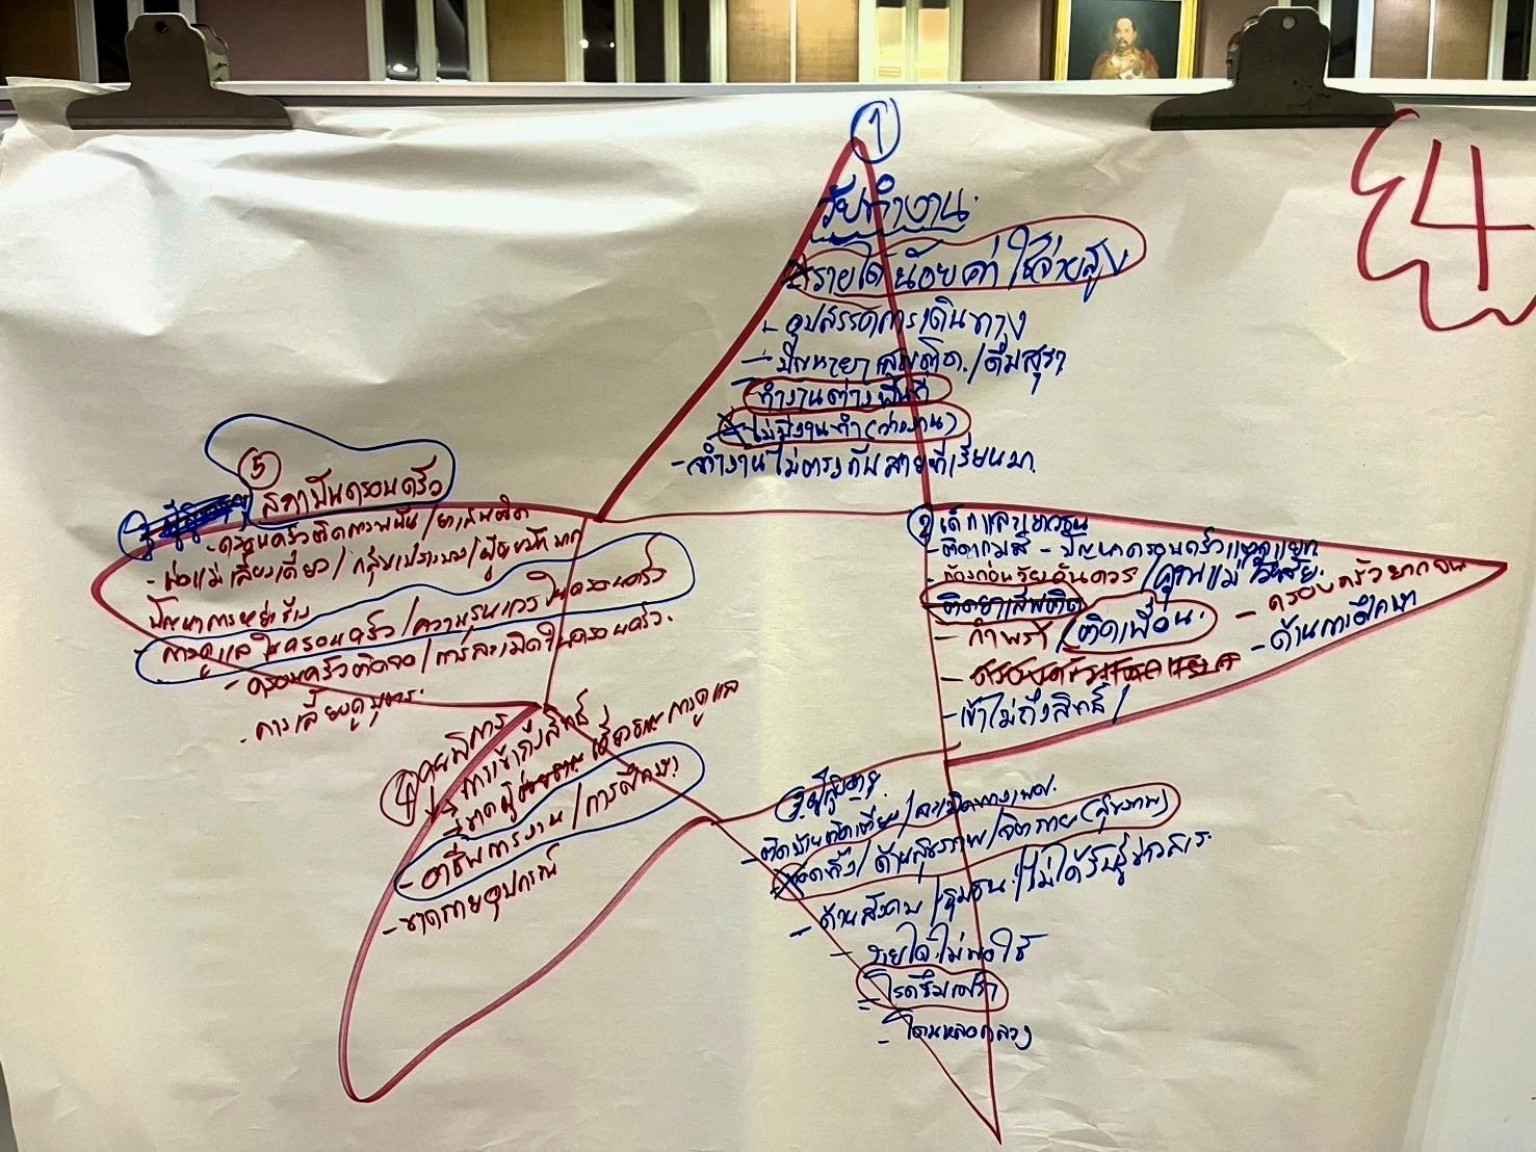 4
1
วัยทำงาน
รายได้น้อยค่าใช้จ่ายสูง
- อุปสรรคการเดินทาง
- ปัญหายาเสพติด/ดื่มสุรา
ทำงานต่างพื้นที่
ไม่มีงานทำ (ว่างงาน)
- ทำงานไม่ตรงกับสายที่เรียนมา
5 สถาบันครอบครัว
- ครอบครัวติดการพนัน/ยาเสพติด
- พ่อแม่เลี้ยงเดี่ยว/กลุ่มเปราะบาง/
ปัญหาการหย่าร้าง
- การดูแลในครอบครัว/ความรุนแรงในครอบครัว
- ครอบครัวติดจอ/การละเมิดในครอบครัว
- การเลี้ยงดูบุตร
2 เด็กและเยาวชน
- ติดเกมส์ - ปัญหาครอบครัวแตกแยก
- ท้องก่อนวัยอันควร/คุณแม่วัยใส
- ครอบครัวยากจน
ติดยาเสพติด
- กำพร้า/ติดเพื่อน
- ด้านการศึกษา
- เข้าไม่ถึงสิทธิ์/
4 คนพิการ
การเข้าถึงสิทธิ์
ขาดผู้ การดูแล
- อาชีพการงาน/การศึกษา
- ขาดกายอุปกรณ์
3 ผู้สูงอายุ
- ติดบ้านติดเตียง/ละเมิดทางเพศ
ทอดทิ้ง/ด้านสุขภาพ/จิต กาย (สุขภาพ)
- ด้านสังคม/ชุมชน/ไม่ได้รับรู้ข่าวสาร
- รายได้ไม่พอใช้
- โรคซึมเศร้า
- โดนหลอกลวง